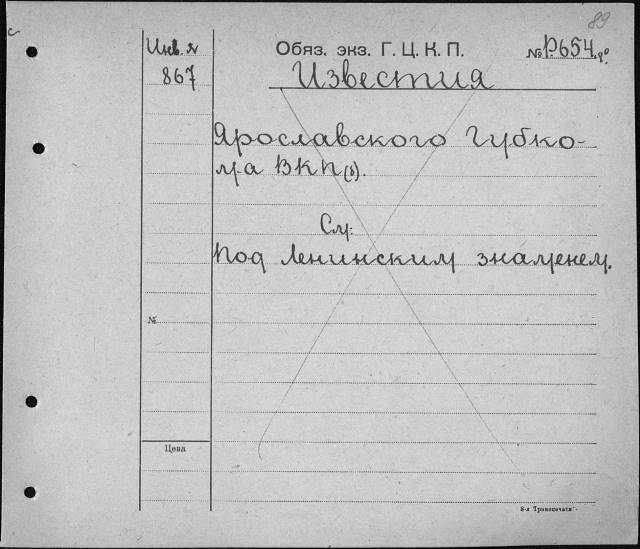 89
Инв. №
Обяз. экз. Г. Ц. К. П.
№ P654
867
Известия
Ярославского Губко-
ма ВКП(б).
См:
Под Ленинским знаменем.
№
Цена
8-я